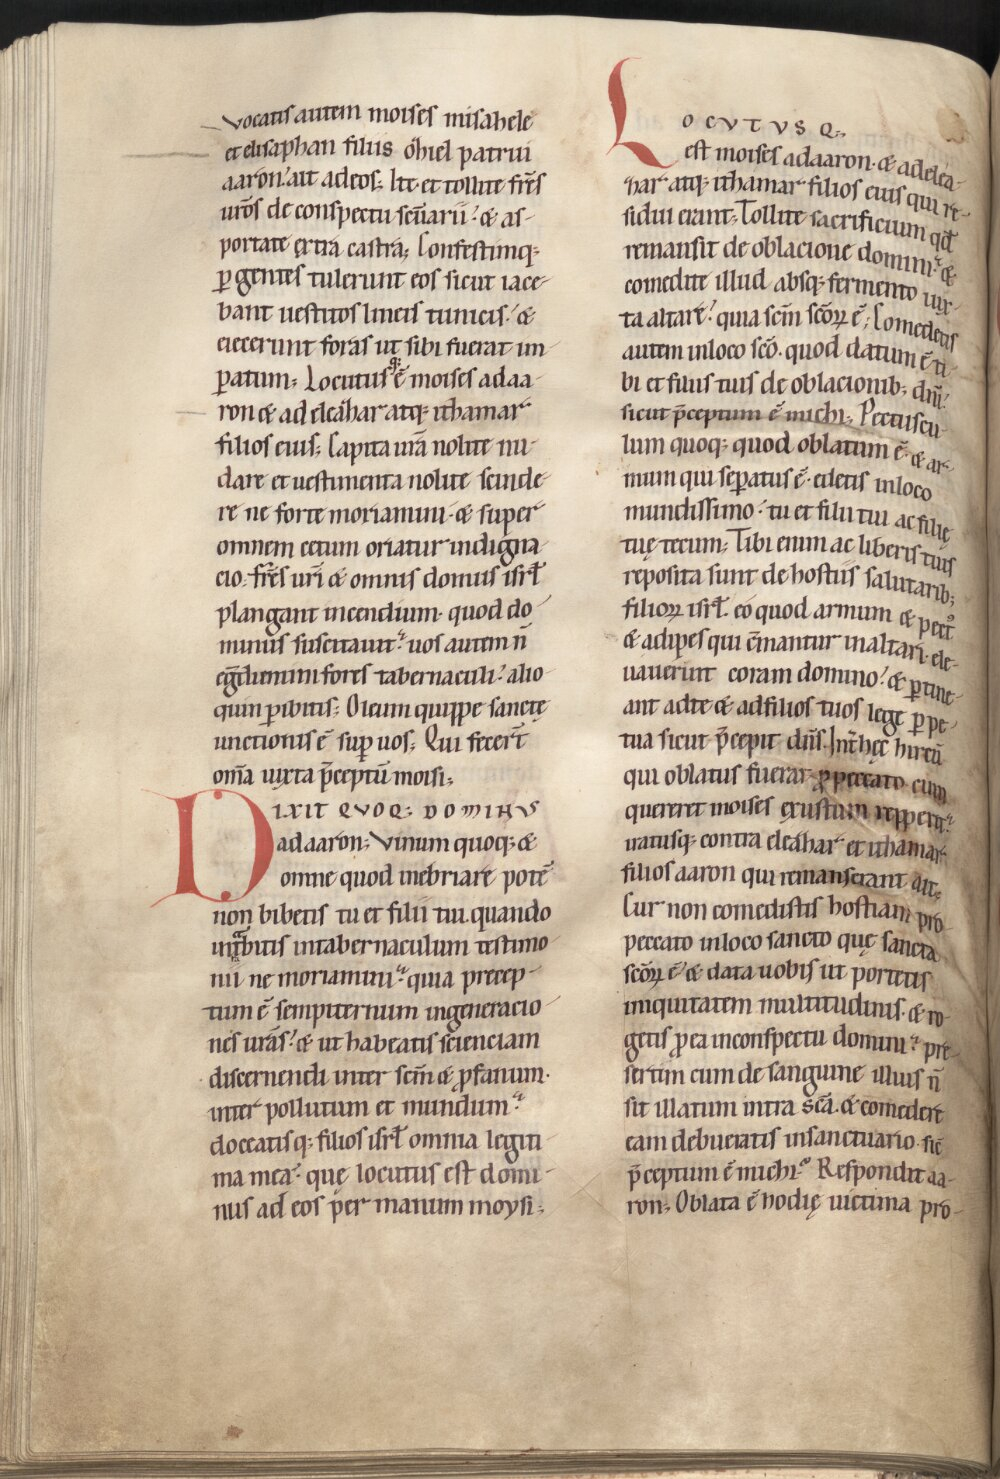 Vocatis autem moises misahele
et elisaphan filiis ohiel patrui
aaron. ait ad eos; Ite. et tollite fr̄es
uros̄ de conspectu sc̄uarii. & as-
portate extra castra; Confestimq;
ꝑgentes tulerunt eos sicut iace-
bant uestitos lineis tunicis. &
eiecerunt foras ut sibi fuerat im
ꝑatum; Locutusq; ē moises ad aa-
ron & ad eleahar atq; ithamar
filios eius; Capita urā nolite nu-
dare et uestimenta nolite scinde-
re ne forte moriamini. & super
omnem cetum oriatur indigna-
cio. fr̄es uri̅ & omnis domus isrł
plangant incendium. quod do-
minus suscitauit. uos autem n̄
eḡdiemini fores tabernaculi. alio-
quin ꝑibitis; Oleum quippe sanctę
unctionis ē suꝑ uos; Qui fecer̄t
om̄a iuxta p̄ceptū moisi;
DIXIT QVOQ; DOMINVS
ad aaron; Vinum quoq; &
omne quod inebriare potē
non bibetis tu et filii tui. quando
intrabitis in tabernaculum testimo
nii ne moriamini. quia precep-
tum ē sempiternum in generacio
nes uras̄. & ut habeatis scienciam
discernendi inter scm̄ & ꝓfanum.
inter pollutum et mundum.
doceatisq; filios isrł omnia legiti-
ma mea. quę locutus est domi-
nus ad eos per manum moysi;
LOCVTVSQ;
est moises ad aaron. & ad elea-
har atq; ithamar filios eius qui re-
sidui erant; Tollite sacrificium qđ
remansit de oblacione domini. &
comedite illud absq; fermento iux-
ta altare. quia scm̄ scōꝝ ē; Comedetis
autem in loco scō. quod datum ē ti-
bi et filiis tuis de oblacionib; dn̄i.
sicut p̄ceptum ē michi; Pectuscu
lum quoq; quod oblatum ē. & ar-
mum qui seꝑatus ē. edetis in loco
mundissimo. tu et filii tui ac filię
tuę tecum; Tibi enim ac liberis tuis
reposita sunt de hostiis salutarib;
filioꝝ isrł. eo quod armum & pect᷒
& adipes qui c̄mantur in altari. ele-
uauerunt coram domino. & ꝑtine-
ant ad te & ad filios tuos lege ꝑpe-
tua sicut p̄cepit dn̄s. Int̄ hęc hircū
qui oblatus fuerat ꝓ peccato cum
quereret moises exustum repperit.
iratusq; contra eleahar et ithamar
filios aaron qui remanserant ait;
Cur non comedistis hostiam pro
peccato in loco sancto quę sancta
scōꝝ ē. & data uobis ut portetis
iniquitatem multitudinis. & ro-
getis ꝓ ea in conspectu domini. pre-
sertim cum de sanguine illius n̄
sit illatum intra scā. & comedere
eam debueratis in sanctuario. sic̄
p̄ceptum ē michi. Respondit aa-
ron; Oblata ē hodię uictima pro